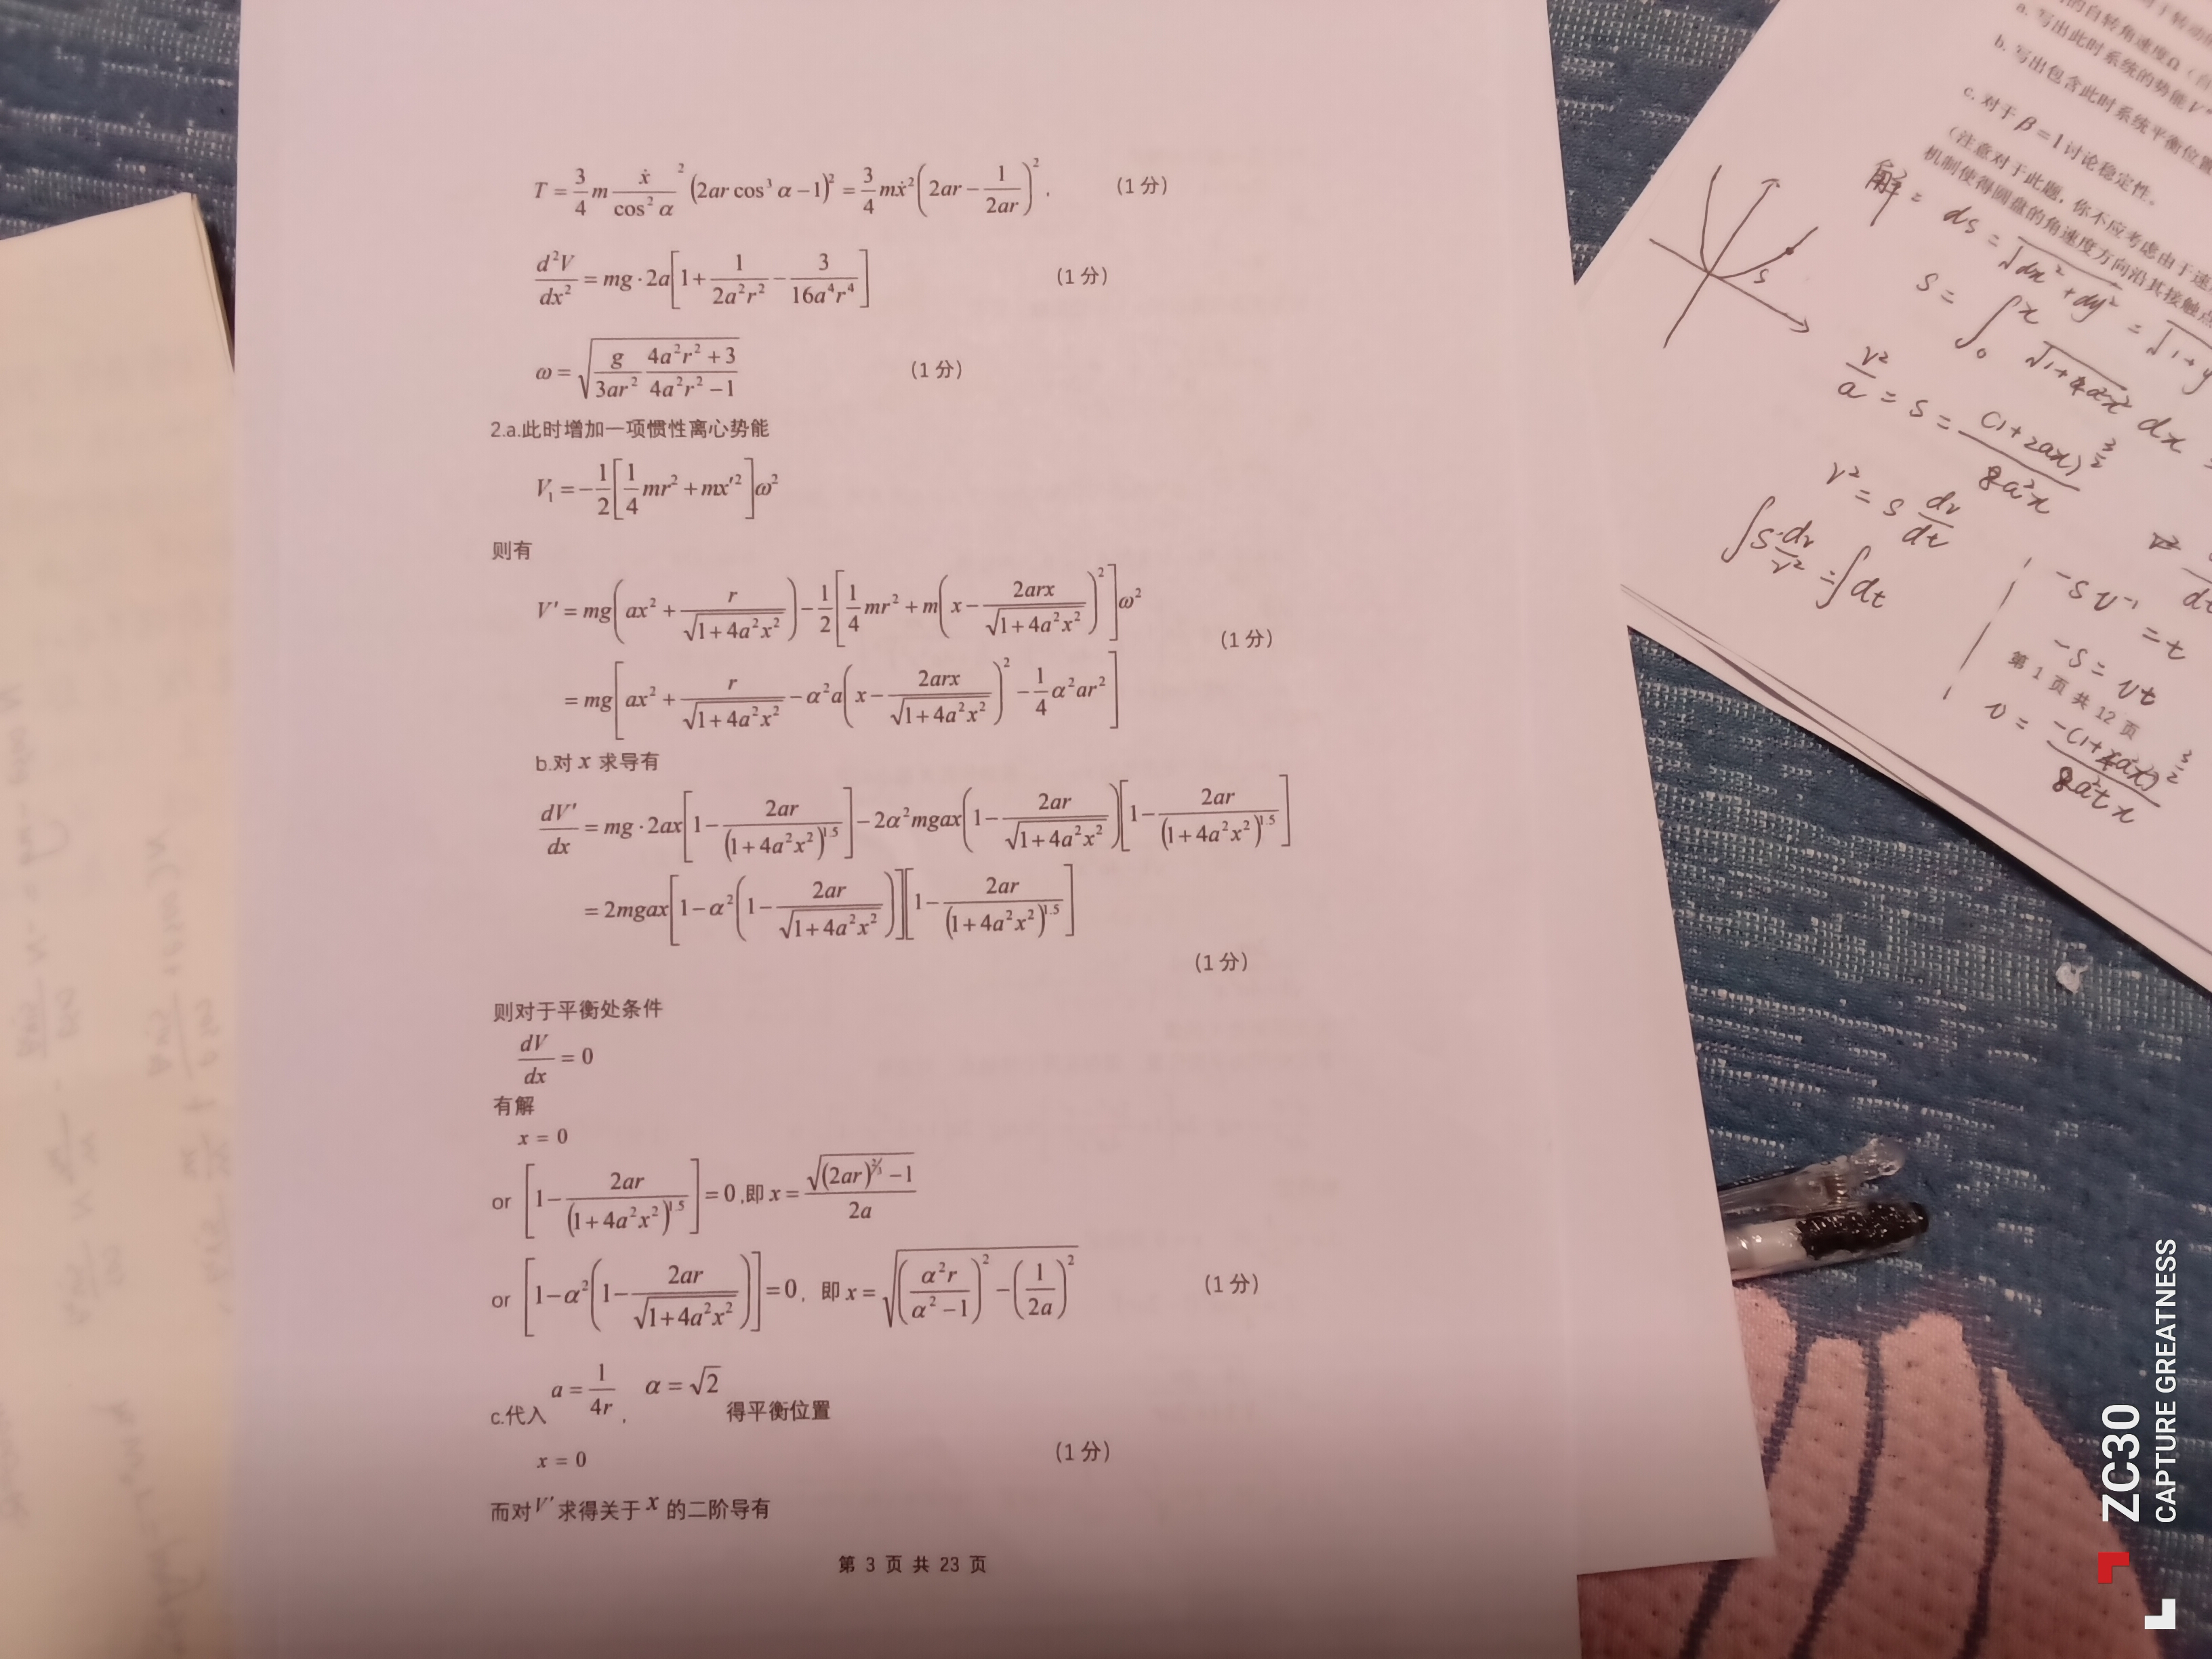 T = \frac{3}{4} m \frac{\dot{x}}{\cos^2 α}^2 (2ar cos^3 α − 1)^2 = \frac{3}{4} m\dot{x}^2 (2ar − \frac{1}{2ar})^2 . (1 分)
\frac{d^2V}{dx^2} = mg · 2a [1 + \frac{1}{2a^2r^2} − \frac{3}{16a^4r^4}] (1 分)
ω = \sqrt{\frac{g}{3ar^2} \frac{4a^2r^2 + 3}{4a^2r^2 − 1}} (1 分)
2.a.此时增加一项惯性离心势能
V_1 = −\frac{1}{2} [\frac{1}{4} mr^2 + mx'^2] ω^2
则有
V' = mg (ax^2 + \frac{r}{\sqrt{1+4a^2x^2}}) − \frac{1}{2} [\frac{1}{4} mr^2 + m (x − \frac{2arx}{\sqrt{1+4a^2x^2}})^2] ω^2
(1 分)
= mg [ax^2 + \frac{r}{\sqrt{1+4a^2x^2}} − α^2 a (x − \frac{2arx}{\sqrt{1+4a^2x^2}})^2 − \frac{1}{4} α^2 ar^2]
b.对 x 求导有
\frac{dV'}{dx} = mg · 2ax [1 − \frac{2ar}{(1+4a^2x^2)^{1.5}}] − 2α^2 mgax (1 − \frac{2ar}{\sqrt{1+4a^2x^2}}) [1 − \frac{2ar}{(1+4a^2x^2)^{1.5}}]
= 2mgax [1 − α^2 (1 − \frac{2ar}{\sqrt{1+4a^2x^2}})] [1 − \frac{2ar}{(1+4a^2x^2)^{1.5}}]
(1 分)
则对于平衡处条件
\frac{dV}{dx} = 0
有解
x = 0
or [1 − \frac{2ar}{(1+4a^2x^2)^{1.5}}] = 0 ,即 x = \frac{\sqrt{(2ar)^{2/3} − 1}}{2a}
or [1 − α^2 (1 − \frac{2ar}{\sqrt{1+4a^2x^2}})] = 0, 即 x = \sqrt{(\frac{α^2 r}{α^2 − 1})^2 − (\frac{1}{2a})^2} (1 分)
c.代入 a = \frac{1}{4r}, α = \sqrt{2} 得平衡位置
x = 0 (1 分)
而对 V' 求得关于 x 的二阶导有
第 3 页 共 23 页
的自转角速度Ω
a. 写出此时系统的势能 V
b. 写出包含此时系统平衡位置
c. 对于 β = 1 讨论稳定性。
(注意对于此题，你不应考虑由于速
机制使得圆盘的角速度方向沿其接触点
解: ds = \sqrt{dx^2 + dy^2} = \sqrt{1+y
S
S = \int_0^x \sqrt{1+4a^2x^2} dx
\frac{v^2}{a} = s = \frac{(1+2ax)^{\frac{3}{2}}}{8a^2x}
v^2 = s \frac{dv}{dt}
\int s \frac{dv}{v^2} = \int dt
-s v^{-1} = t
-s = vt
第 1 页 共 12 页
ZC30
CAPTURE GREATNESS